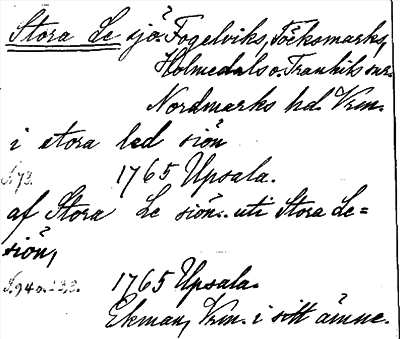 Stora Le sjö. Fogelviks, Töcksmarks,
Holmedals o. Trankils snr.
Nordmarks hd. Vrm.
i stora led siön
S. 73. 1765 Upsala.
af Stora Le siön.. uti Stora Le=
siön,
S. 94 o. 1765 Upsala.
Ekman, Vrm. i sitt ämne.